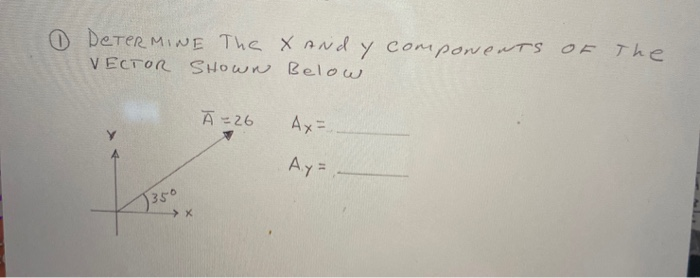 ① DETERMINE The X AND y COMPONENTS OF The
VECTOR SHOWN Below
A̅ = 26 Ax = ________
Y
Ay = ________
35°
X